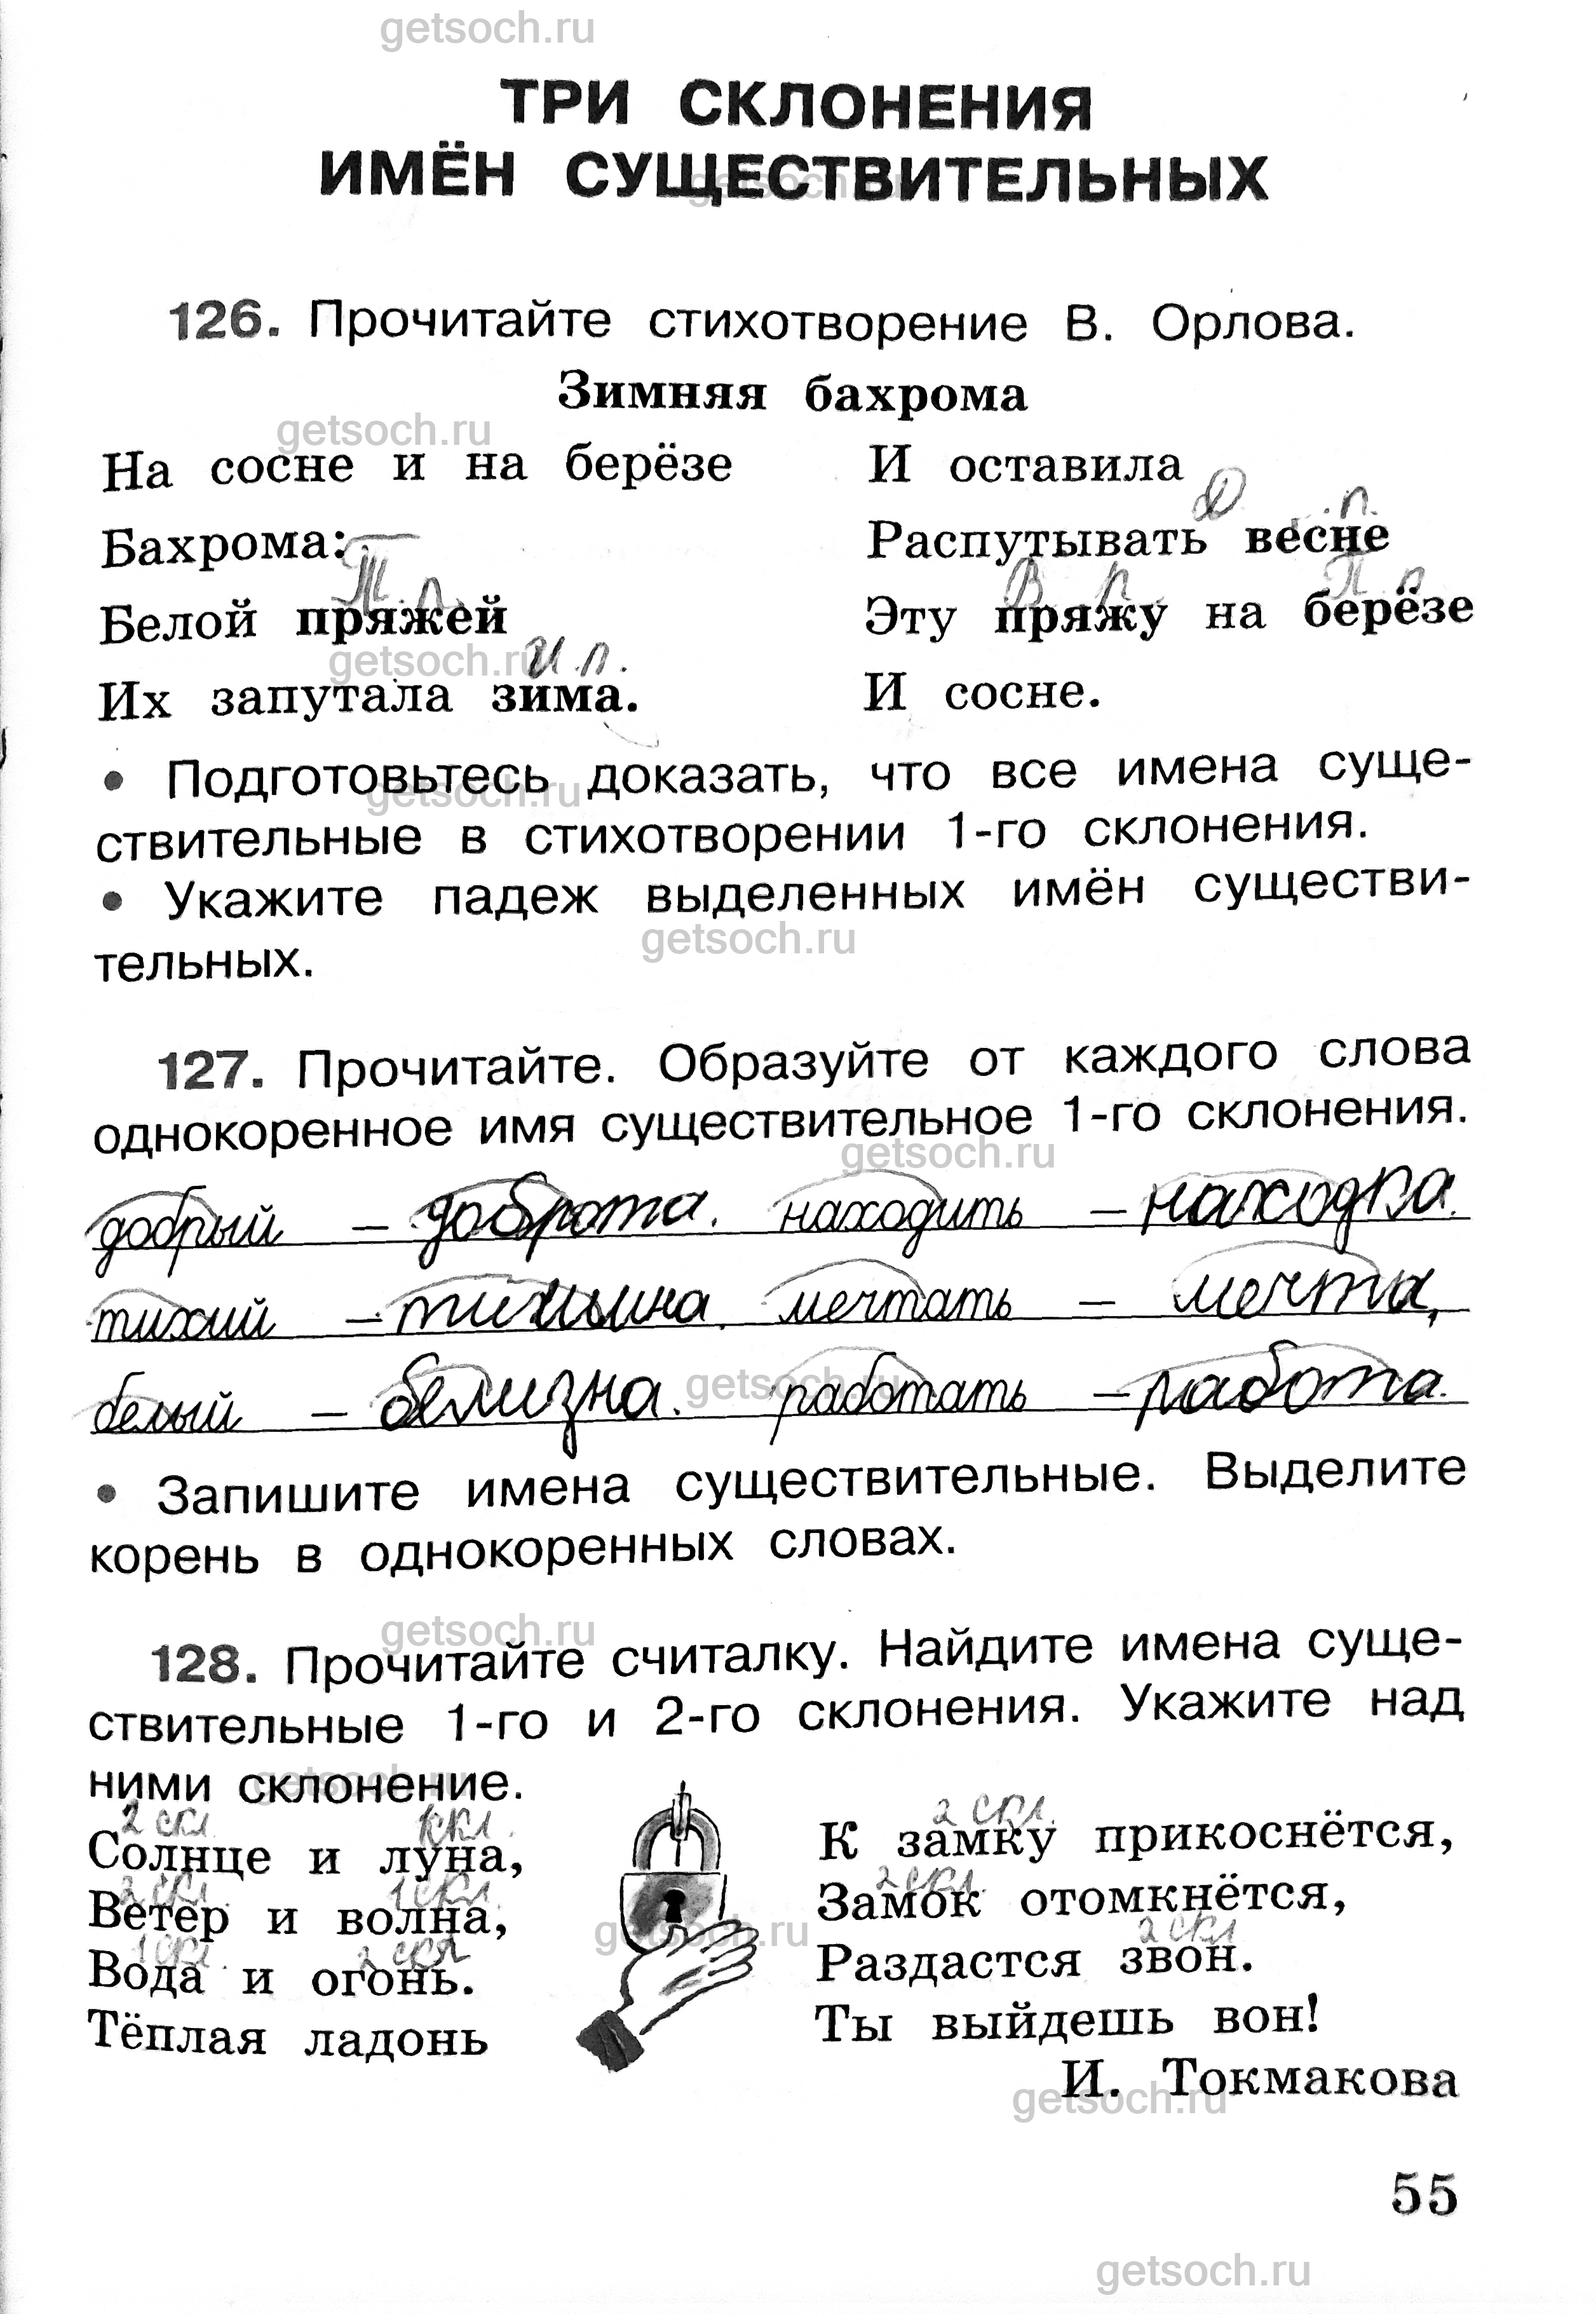 getsoch.ru
ТРИ СКЛОНЕНИЯ
ИМЁН СУЩЕСТВИТЕЛЬНЫХ
getsoch.ru
126. Прочитайте стихотворение В. Орлова.
Зимняя бахрома
getsoch.ru
На сосне и на берёзе
Бахрома:
Т. п.
Белой пряжей
getsoch.ru
И. п.
Их запутала зима.
И оставила
Д. п.
Распутывать весне
В. п. П. п.
Эту пряжу на берёзе
И сосне.
• Подготовьтесь доказать, что все имена суще-
getsoch.ru
ствительные в стихотворении 1-го склонения.
• Укажите падеж выделенных имён существи-
getsoch.ru
тельных.
127. Прочитайте. Образуйте от каждого слова
однокоренное имя существительное 1-го склонения.
getsoch.ru
добрый – доброта. находить – находка.
тихий – тишина. мечтать – мечта,
белый – белизна. работать – работа.
getsoch.ru
• Запишите имена существительные. Выделите
корень в однокоренных словах.
getsoch.ru
128. Прочитайте считалку. Найдите имена суще-
ствительные 1-го и 2-го склонения. Укажите над
ними склонение.
getsoch.ru
2 скл 1 скл
Солнце и луна,
2 скл 1 скл
Ветер и волна,
1 скл 2 скл
Вода и огонь.
Тёплая ладонь
getsoch.ru
2 скл.
К замку прикоснётся,
2 скл
Замок отомкнётся,
2 скл
Раздастся звон.
Ты выйдешь вон!
И. Токмакова
getsoch.ru
55
getsoch.ru